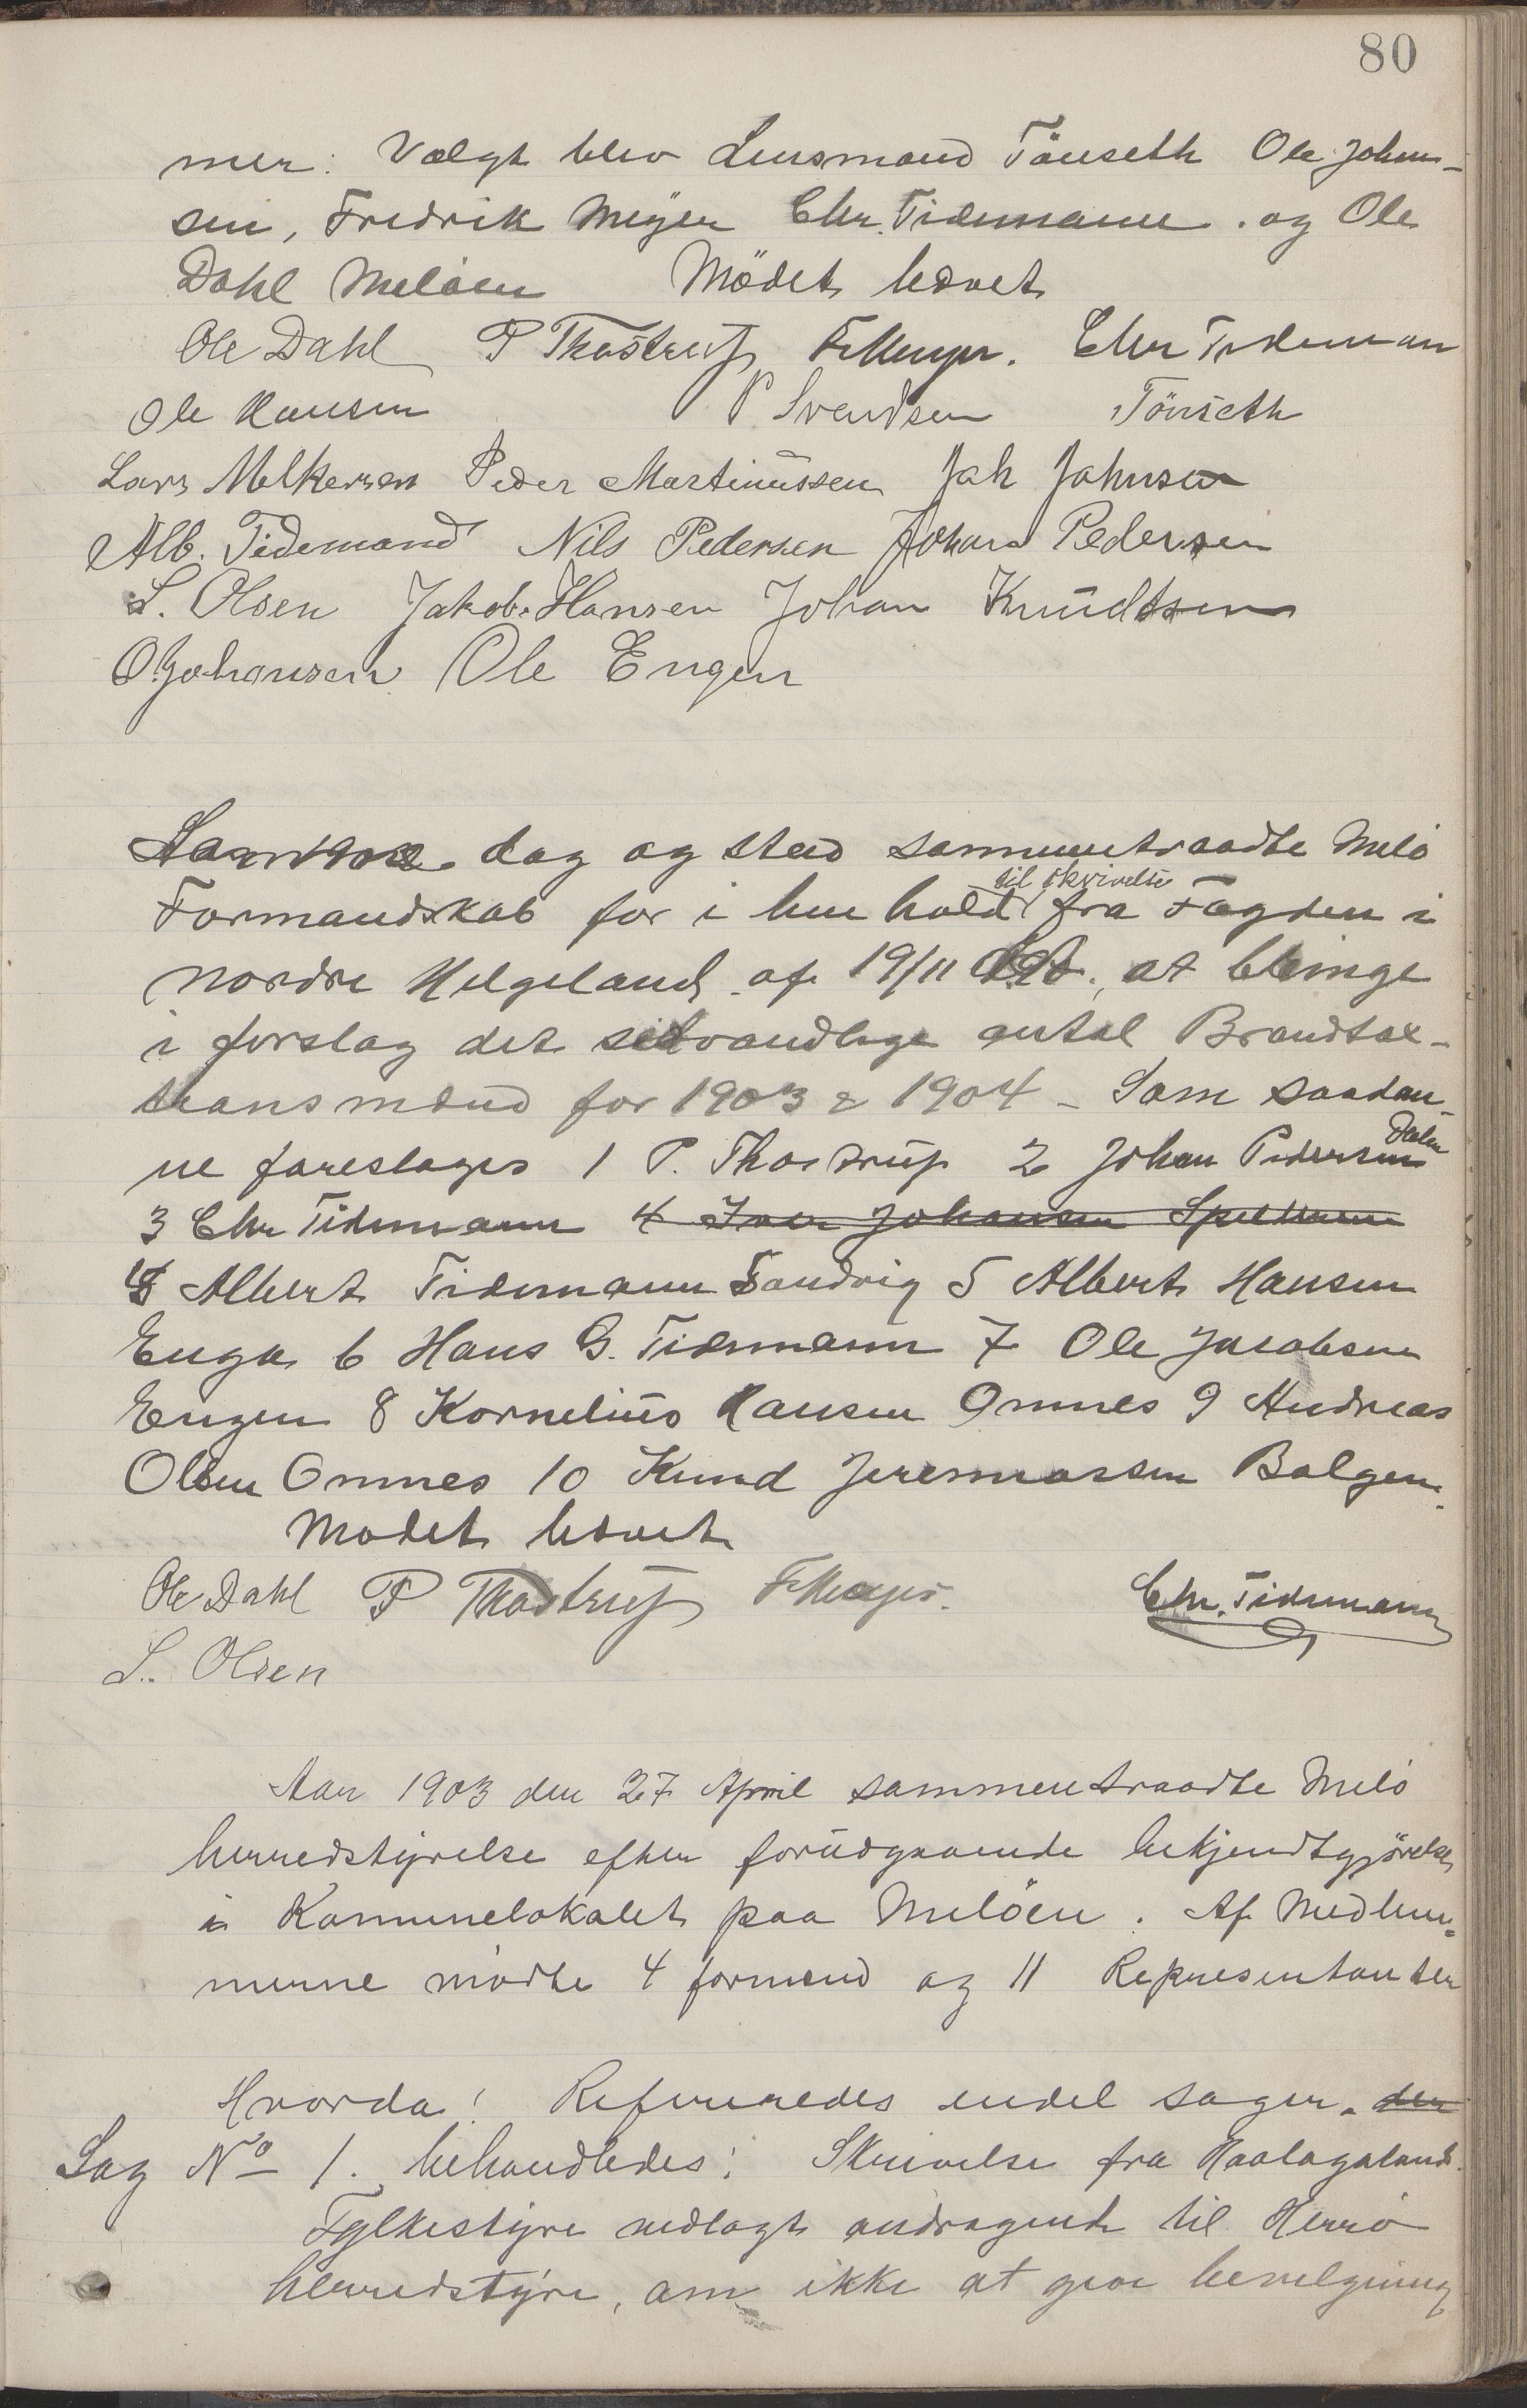 80
mer: Valgt blev Lensmand Tönseth Ole Johan-
sen, Fredrik Meyer Chr. Tidemann. og Ole
Dahl Meløen Mödet hævet
Ole Dahl P Thostrup F. Meyer. Chr Tideman
Ole Hansen P Svendsen Tönseth
Lars Melkersen Peder Martinussen Joh Johnsen
Alb. Tidemand Nils Pedersen Johan Pedersen
L. Olsen Jakob. Hansen Johan Knudtsen
O Johansen Ole Engen
Aar 1902 dag og sted sammentraadte Melö
til skrivelse
Formandskab for i hen hold fra Fogden i
nordre Helgeland af 19/11 at bringe
i forslag det sedvandlige antal Brandtax-
tionsmænd for 1903 & 1904 - Som saadan-
ne foreslages 1 P. Thostrup 2 Johan Pedersen Dalen
3 Chr Tidemann 4 Iver Johansen Spildern
4 Albert Tidemann Sandvig 5 Albert Hansen
Enga 6 Hans G. Tidemann 7 Ole Jacobsen
Engen 8 Kornelius Hansen Ornnes 9 Andreas
Olsen Ornnes 10 Knud Jeremiassen Bolgen.
Mødet hævet
Ole Dahl P Thostrup F Meyer. Chr. Tidemann
L. Olsen
Aar 1903 den 27 April sammentraadte Melö
herredstyrelse efter forudgaaende bekjendtgjörelse
i Komunelokalet paa Melöen. Af Medlem-
merne mødte 4 formend og 11 Representanter
Hvorda! Refereredes endel sager. der
Sag No 1. behandledes: Skrivelse fra Haalogalands
Fylkestyre vedlagt andragende til Herrö
herredstyre, om ikke at give bevilgning